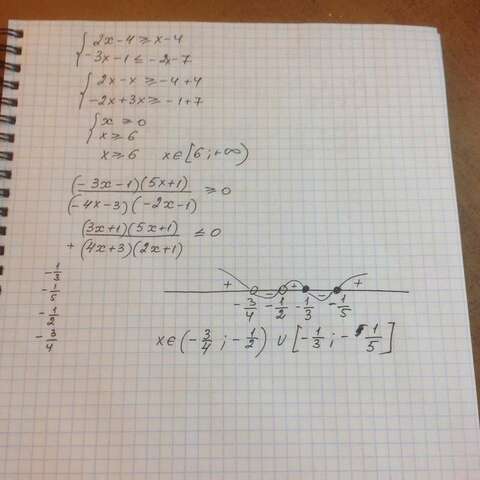 { 2x-4 ≥ x-4
-3x-1 ≤ -2x-7
{ 2x-x ≥ -4+4
-2x+3x ≥ -1+7
{ x ≥ 0
x ≥ 6
x ≥ 6 x∈[6;+∞)
(-3x-1)(5x+1) / (-4x-3)(-2x-1) ≥ 0
(3x+1)(5x+1) / + (4x+3)(2x+1) ≤ 0
-1/3
-1/5
-1/2
-3/4
+ - + - +
-3/4 -1/2 -1/3 -1/5
x∈(-3/4;-1/2) ∪ [-1/3;-1/5]